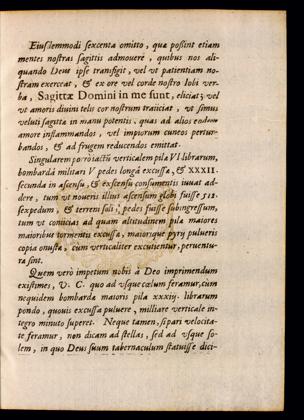 Eiuslemmodi sexcenta omitto, quæ possint etiam
mentes nostras sagittis admouere, quibus nos ali-
quando Deus ipse transfigit, vel vt patientiam no-
stram exerceat, & ex ore vel corde nostro Iobi ver-
ba, Sagittæ Domini in me sunt, eliciat; vel
vt amoris diuini telis cor nostrum traiiciat, vt simus
veluti sagitta in manu potentis, quas ad alios eodem
amore inflammandos, vel impiorum cuneos pertur-
bandos, & ad frugem reducendos emittat.
Singularem porrò iactū verticalem pila VI librarum,
bombarda militari V pedes longa excussa, & XXXII.
secunda in ascensu, & descensu consumentis iuuat ad-
dere, tum vt noueris illius ascensum globi fuisse 512.
sexpedum, & terreni soli, pedes fuisse subingressum,
tum vt coniicias ad quam altitudinem pila maiores
maioribus tormentis excussa, maiorique pyrij pulueris
copia onusta, cum verticaliter excutientur, peruentu-
ra sint.
Quem verò impetum nobis à Deo imprimendum
existimes, V. C. quo ad vsque cœlum feramur, cum
nequidem bombarda maioris pila xxxiij. librarum
pondo, quouis excussa puluere, milliare verticale in-
tegro minuto superet. Neque tamen, si pari velocita-
te feramur, non dicam ad stellas, sed ad vsque so-
lem, in quo Deus suum tabernaculum statuisse dici-